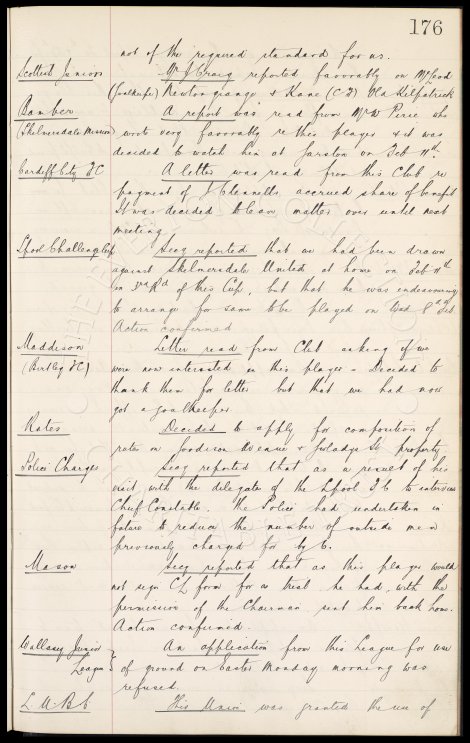 176
not of the required standard for us.
Scottish Juniors Mr J Craig reported favorably on McLeod
(Goalkeeper) Newtongrange & Kane (C.F) Old Kilpatrick
Bamber A report was read from Mr W Peirce who
(Skelmersdale Mission) wrote very favorably re this player & it was
decided to watch him at Garston on Feb 11th.
Cardiff City FC A letter was read from this Club re
payment of J Clennells accrued share of benefit
It was decided to leave matter over until next
meeting.
Lpool Challenge Cup Secy reported that we had been drawn
against Skelmersdale United at home on Feb 11th
in 3rd Rd of this Cup, but that he was endeavouring
to arrange for same to be played on Wed 8th Feb.
Action confirmed
Maddison Letter read from Club asking if we
were now interested in this player - Decided to
thank them for letter but that we had now
got a goalkeeper
Rates Decided to apply for composition of
rates on Goodison Avenue & Gwladys St property.
Police Charges Secy reported that as a result of his
visit with the delegate of the Lpool FC to interview
Chief Constable. The Police had undertaken in
future to reduce the number of outside men
previously charged for by 6.
Mason Secy reported that as this player would
not sign CL form for a trial he had, with the
permission of the Chairman sent him back home.
Action confirmed.
Wallasey Junior An application from this League for use
League } of ground on Easter Monday morning was
refused.
L.U.B.C This Union was granted the use of